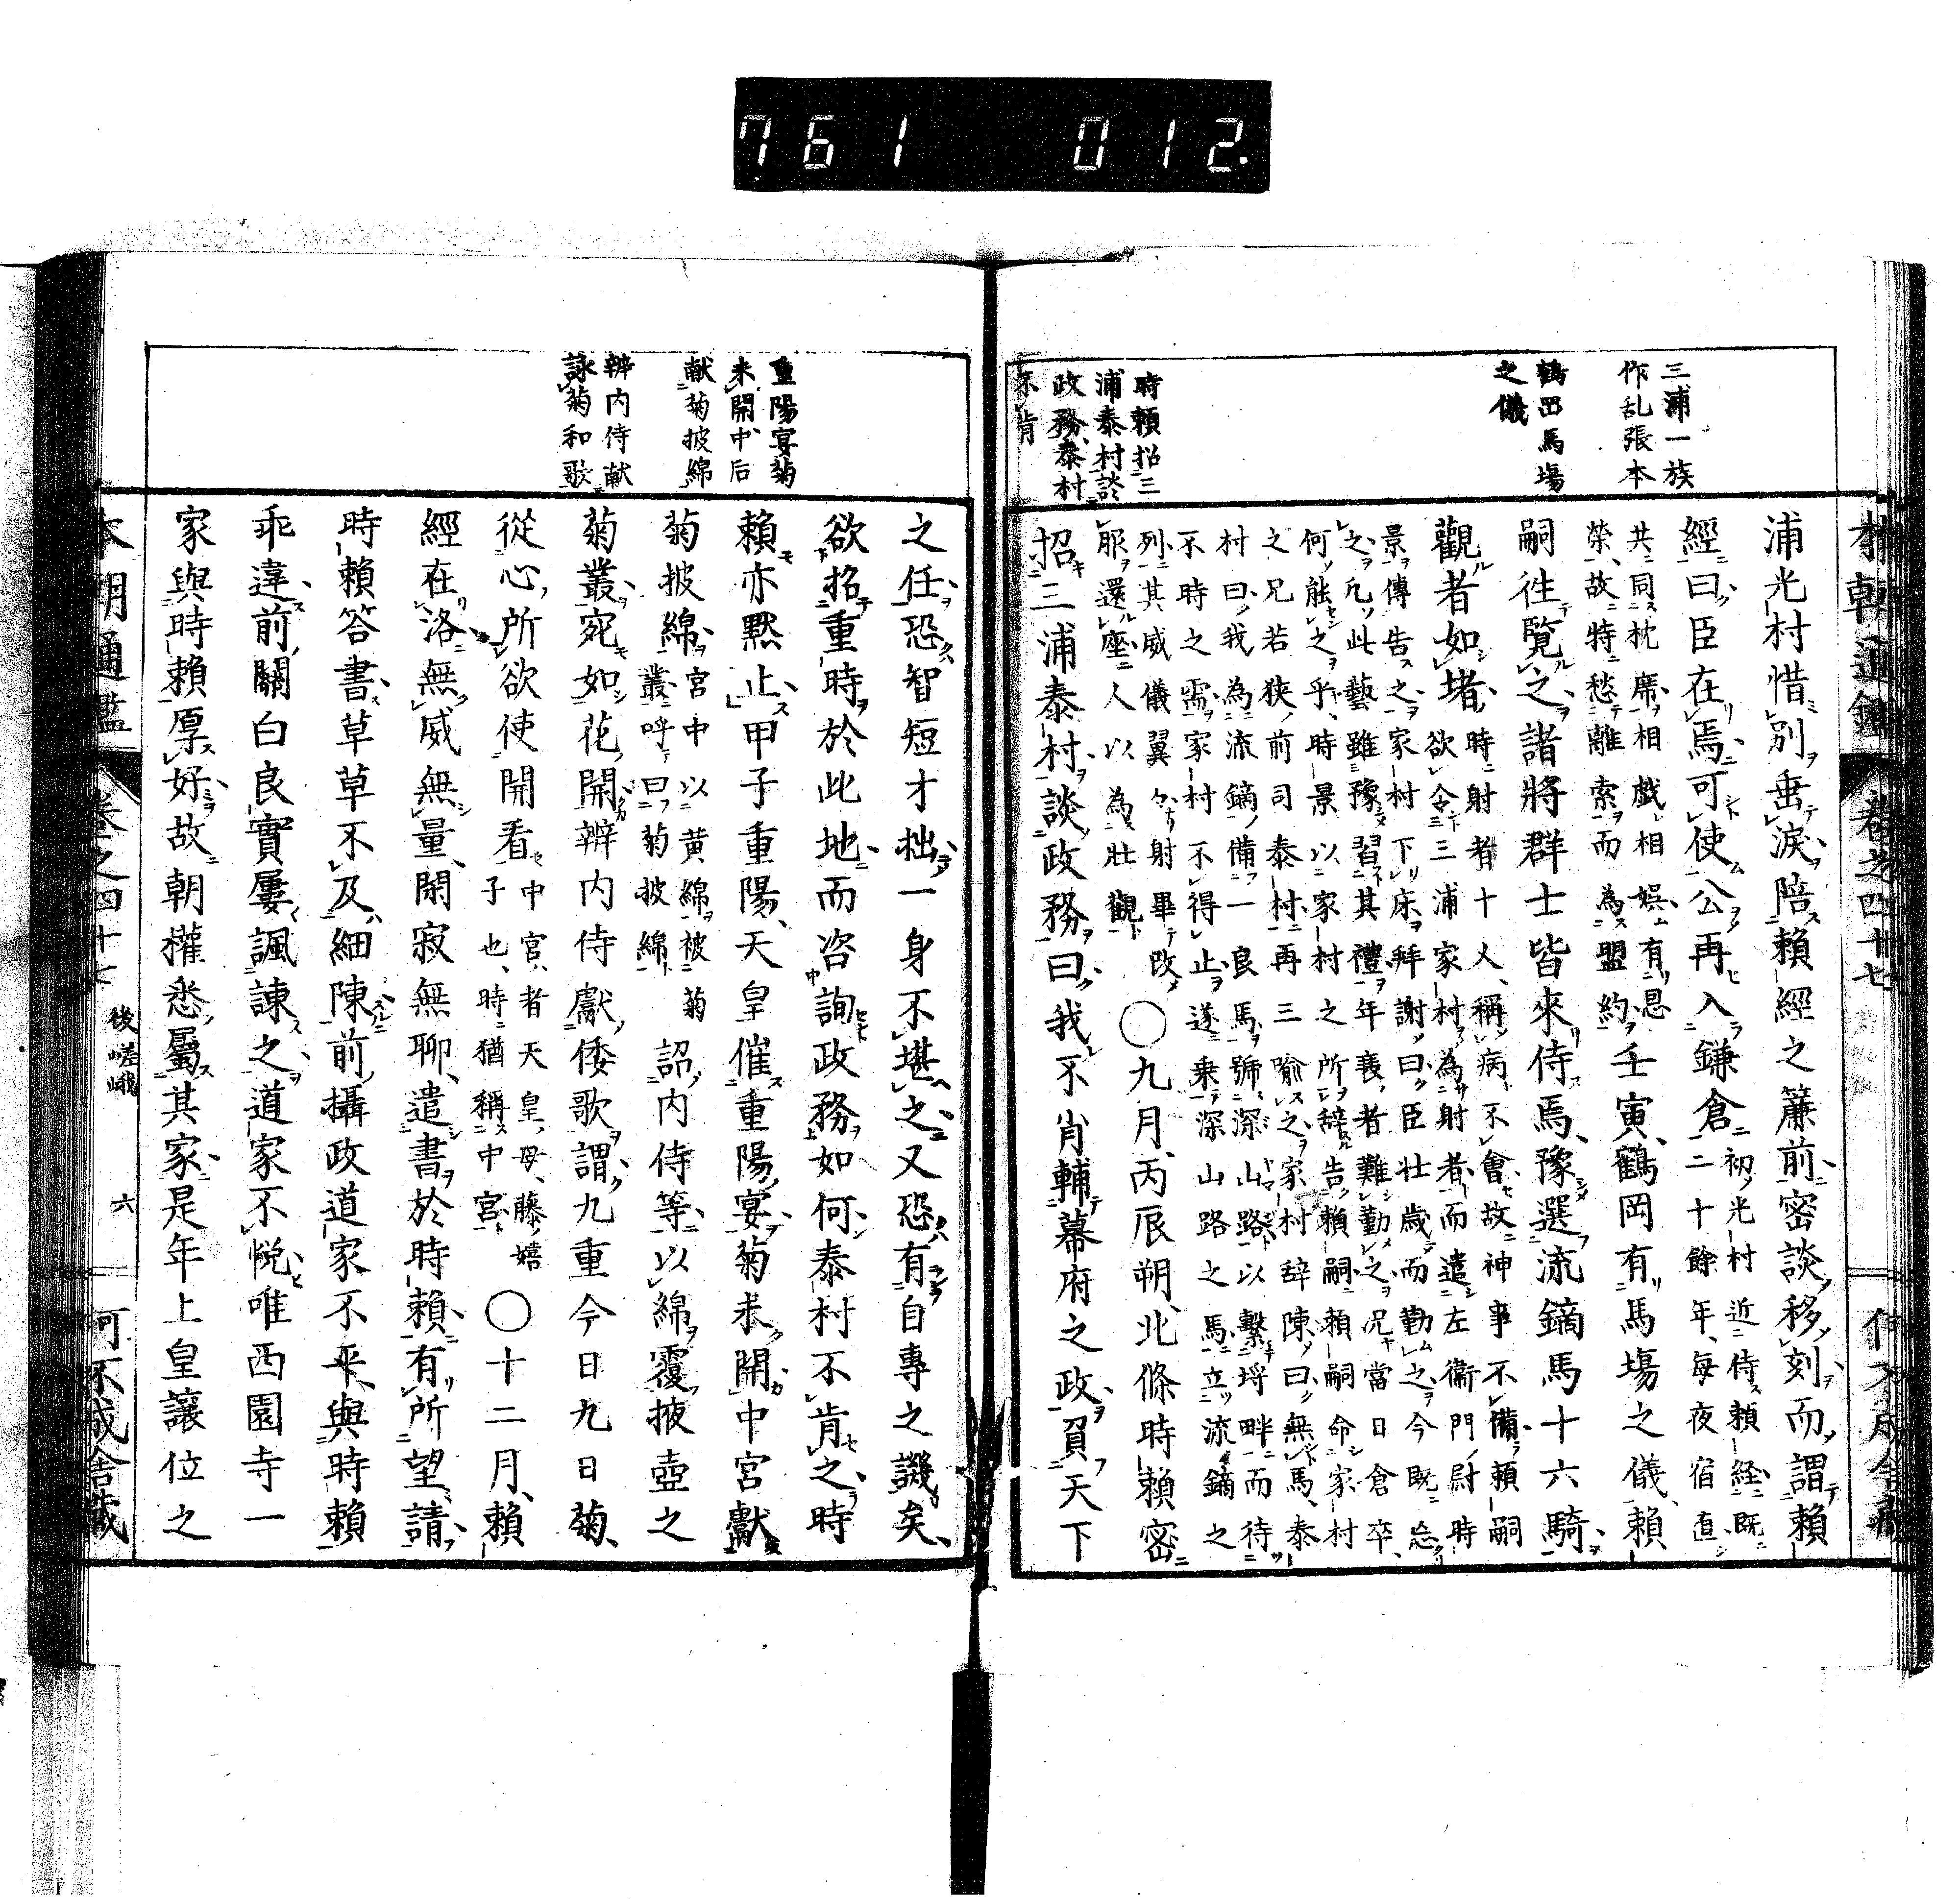 761 012.
三浦一族
作乱張本
鶴岡馬場
之儀
時頼招三
浦泰村談
政務泰村
不肯
浦光村惜別垂淚陪賴經之簾前密談移刻而謂賴
經曰臣在焉可使公再入鎌倉
初光村近侍賴經既
二十餘年每夜宿直
共同枕席相戲相娯有恩
榮故特愁離索而為盟約
壬寅鶴岡有馬場之儀賴
嗣往覽之諸將群士皆來侍焉豫選流鏑馬十六騎
觀者如堵
時射者十人稱病不會故神事不備賴嗣
欲令三浦家村為射者而遣左衞門尉時
景傳告之家村下床拜謝曰臣壯歲而勤之今既忘
之凡此藝雖豫習其禮年衰者難勤之况當日倉卒
何能之乎時景以家村之所辞告賴嗣賴嗣命家村
之兄若狭前司泰村再三喩之家村辞陳曰無馬泰
村曰我為流鏑備一良馬號深山路以繫埒畔而待
不時之需家村不得止遂乘深山路之馬立流鏑之
列其威儀翼々射畢改
服還座人以為壯觀
〇九月丙辰朔北條時賴密
招三浦泰村談政務曰我不肖輔幕府之政負天下
本朝通鑑 卷之四十七
重陽宴菊
未開中后
献菊披綿
辨内侍献
詠菊和歌
之任恐智短才拙一身不堪之又恐有自專之譏矣
欲招重時於此地而咨詢政務如何泰村不肯之時
賴亦默止甲子重陽天皇催重陽宴菊未開中宮獻
菊披綿
宮中以黄綿被菊
叢呼曰菊披綿
詔内侍等以綿覆掖壺之
菊叢宛如花開辨内侍獻倭歌謂九重今日九日菊
從心所欲使開看
中宮者天皇母藤嬉
子也時猶稱中宮
〇十二月賴
經在洛無威無量閑寂無聊遣書於時賴有所望請
時賴答書草草不及細陳前攝政道家不平與時賴
乖違前關白良實屢諷諫之道家不悦唯西園寺一
家與時賴厚好故朝權悉屬其家是年上皇讓位之
本朝通鑑 卷之四十七 後嵯峨 六 何不成舎藏